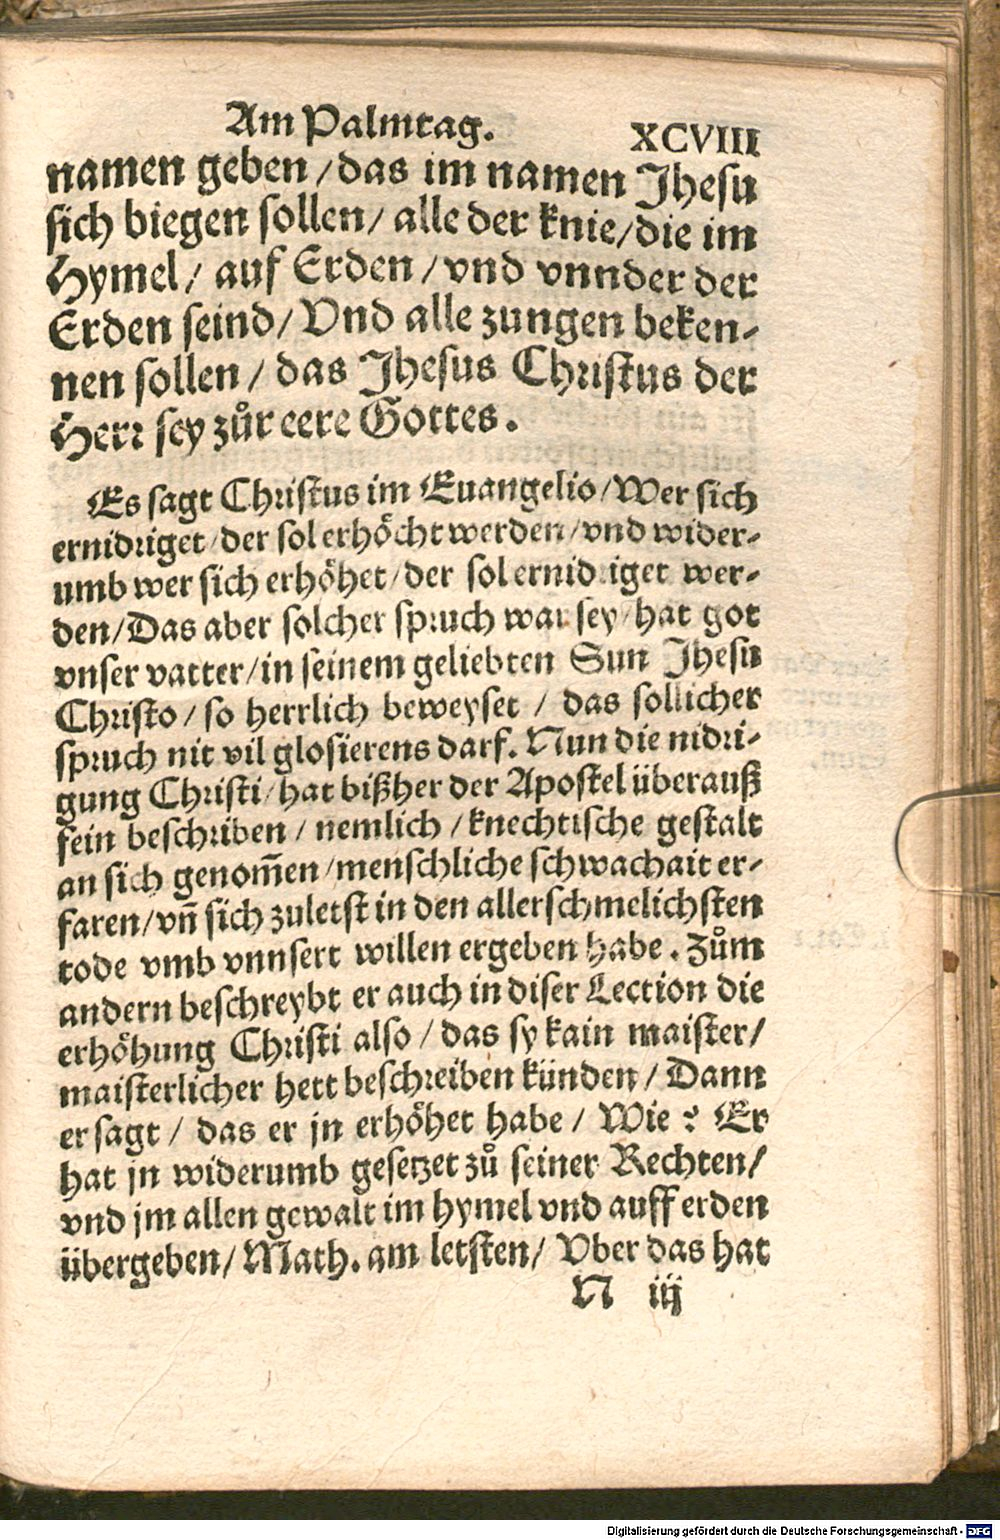 Am Palmtag. XCVIII
namen geben / das im namen Jhesu
sich biegen sollen / alle der knie / die im
Hymel / auf Erden / vnd vnnder der
Erden seind / Vnd alle zungen beken-
nen sollen / das Jhesus Christus der
Herr sey zůr eere Gottes.
Es sagt Christus im Euangelio / Wer sich
ernidriget / der sol erhöcht werden / vnd wider-
umb wer sich erhöhet / der sol ernidriget wer-
den / Das aber solcher spruch war sey / hat got
vnser vatter / in seinem geliebten Sun Jhesu
Christo / so herrlich beweyset / das sollicher
spruch nit vil glosierens darf. Nun die nidri-
gung Christi / hat bißher der Apostel überauß
fein beschriben / nemlich / knechtische gestalt
an sich genom̄en / menschliche schwachait er-
faren / vn̄ sich zuletst in den allerschmelichsten
tode vmb vnnsert willen ergeben habe. Zům
andern beschreybt er auch in diser Lection die
erhöhung Christi also / das sy kain maister /
maisterlicher hett beschreiben künden / Dann
er sagt / das er jn erhöhet habe / Wie ? Er
hat jn widerumb gesetzet zů seiner Rechten /
vnd jm allen gewalt im hymel vnd auff erden
übergeben / Math. am letsten / Vber das hat
N iij
Digitalisierung gefördert durch die Deutsche Forschungsgemeinschaft - DFG